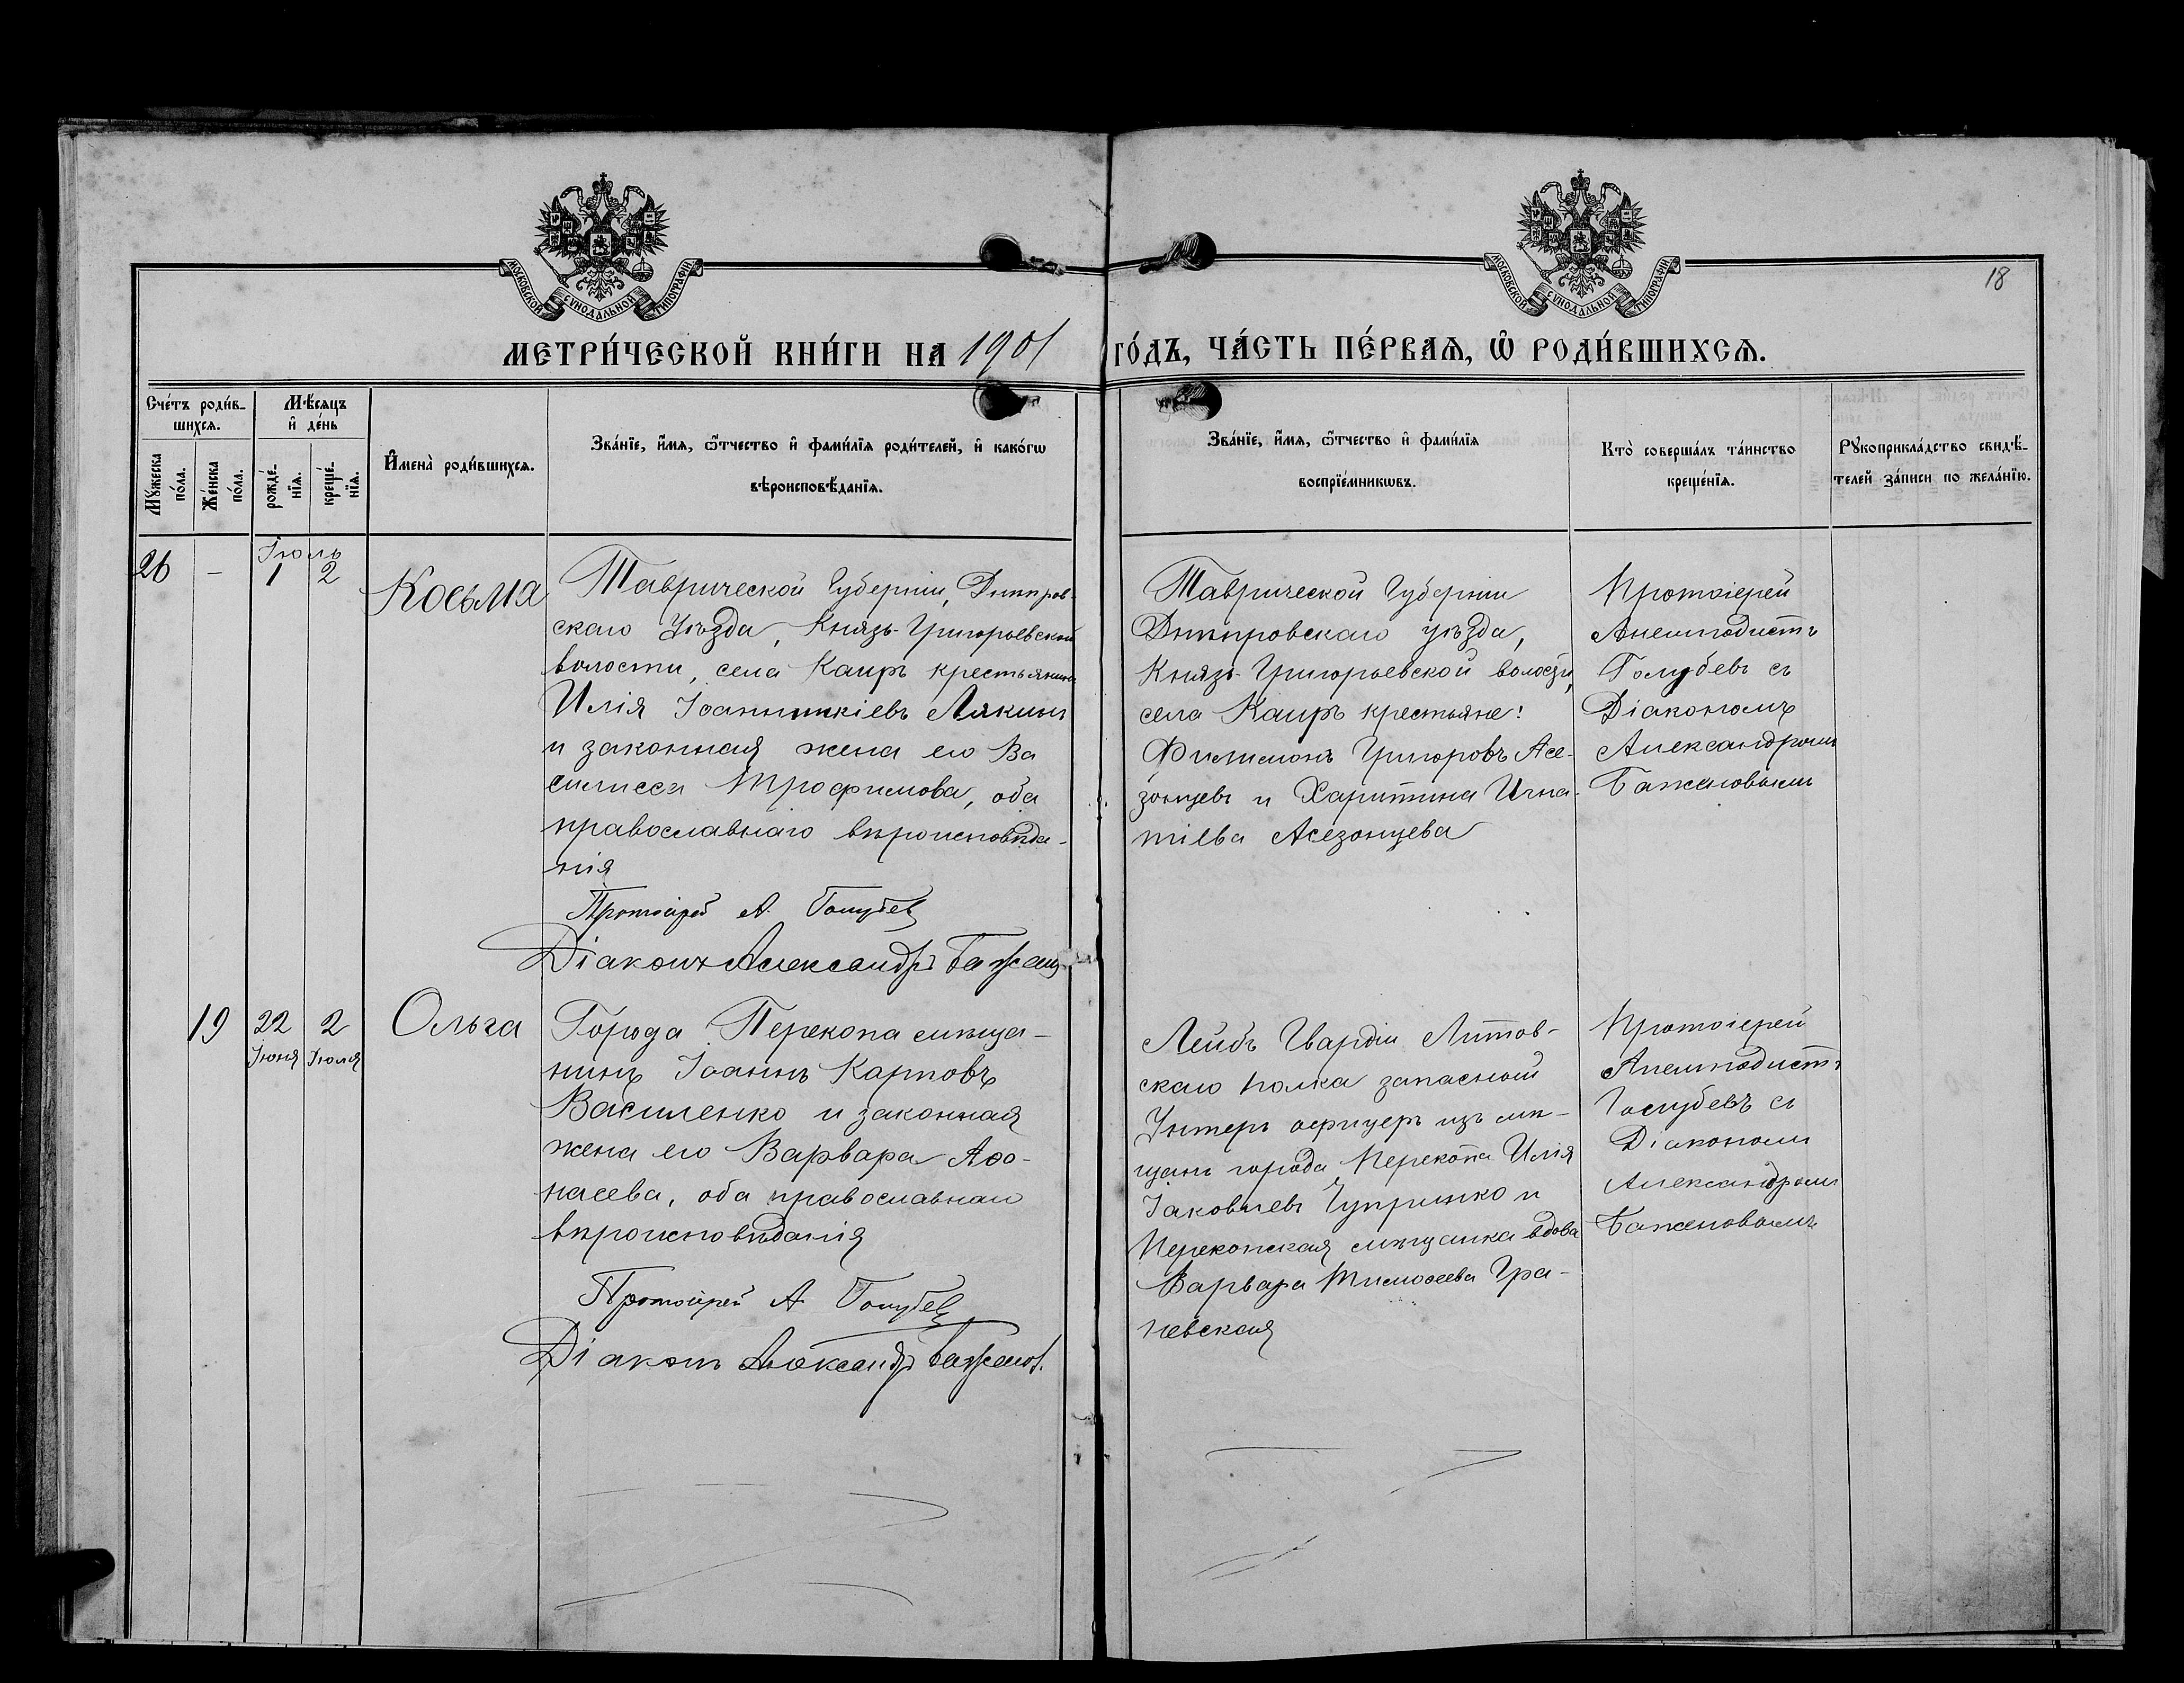 МОСКОВСКОЙ СУНОДАЛЬНОЙ ТИПОГРАФІИ
МОСКОВСКОЙ СУНОДАЛЬНОЙ ТИПОГРАФІИ
18
МЕТРИ́ЧЕСКОЙ КНИ́ГИ НА 1901 ГО́ДЪ, ЧА́СТЬ ПЕ́РВАѦ, Ѡ҆ РОДИ́ВШИХСѦ.
Сче́тъ роди́в-
шихсѧ.
Мꙋ́жеска
по́ла.
Же́нска
по́ла.
Мѣ́сѧцъ
и҆ де́нь
рожде́-
нїѧ.
креще́-
нїѧ.
И҆мена̀ роди́вшихсѧ.
Зва́нїе, и҆́мѧ, ѻ҆́тчество и҆ фами́лїѧ роди́телей, и҆ како́гѡ
вѣроисповѣ́данїѧ.
Зва́нїе, и҆́мѧ, ѻ҆́тчество и҆ фами́лїѧ
воспрїе́мникѡвъ.
Кто̀ соверша́лъ та́инство
креще́нїѧ.
Рꙋкоприкла́дство свидѣ́-
телей за́писи по жела́нїю.
26
-
Іюль
1 2
Косьма
Таврической Губерніи, Днѣпров-
скаго Уѣзда, Князь-Григорьевской
волости, села Каиръ крестьянинъ
Илія Іоанникіевъ Лякинъ
и законная жена его Ва
силисса Трофимова, оба
православнаго вѣроисповѣда-
нія
Протоіерей А. Голубевъ
Діаконъ Александръ Баженовъ
Таврической Губерніи
Днѣпровскаго уѣзда,
Князь-Григорьевской волости,
села Каиръ крестьяне:
Филимонъ Григоровъ Асе-
зонцевъ и Харитина Игна-
тіева Асезонцева
Протоіерей
Анемподистъ
Голубевъ съ
Діакономъ
Александромъ
Баженовымъ
19
22
Іюня
2
Іюля
Ольга
Города Перекопа мѣща-
нинъ Іоаннъ Карповъ
Василенко и законная
жена его Варвара Аѳо-
насева, оба православнаго
вѣроисповѣданія
Протоіерей А. Голубевъ
Діаконъ Александръ Баженов.
Лейбъ Гвардіи Литов-
скаго полка запасный
Унтеръ офицеръ изъ мѣ-
щанъ города Перекопа Илія
Іаковлевъ Чупринко и
Перекопская мѣщанка вдова
Варвара Тимоѳеева Гра-
невская
Протоіерей
Анемподистъ
Голубевъ съ
Діакономъ
Александромъ
Баженовымъ